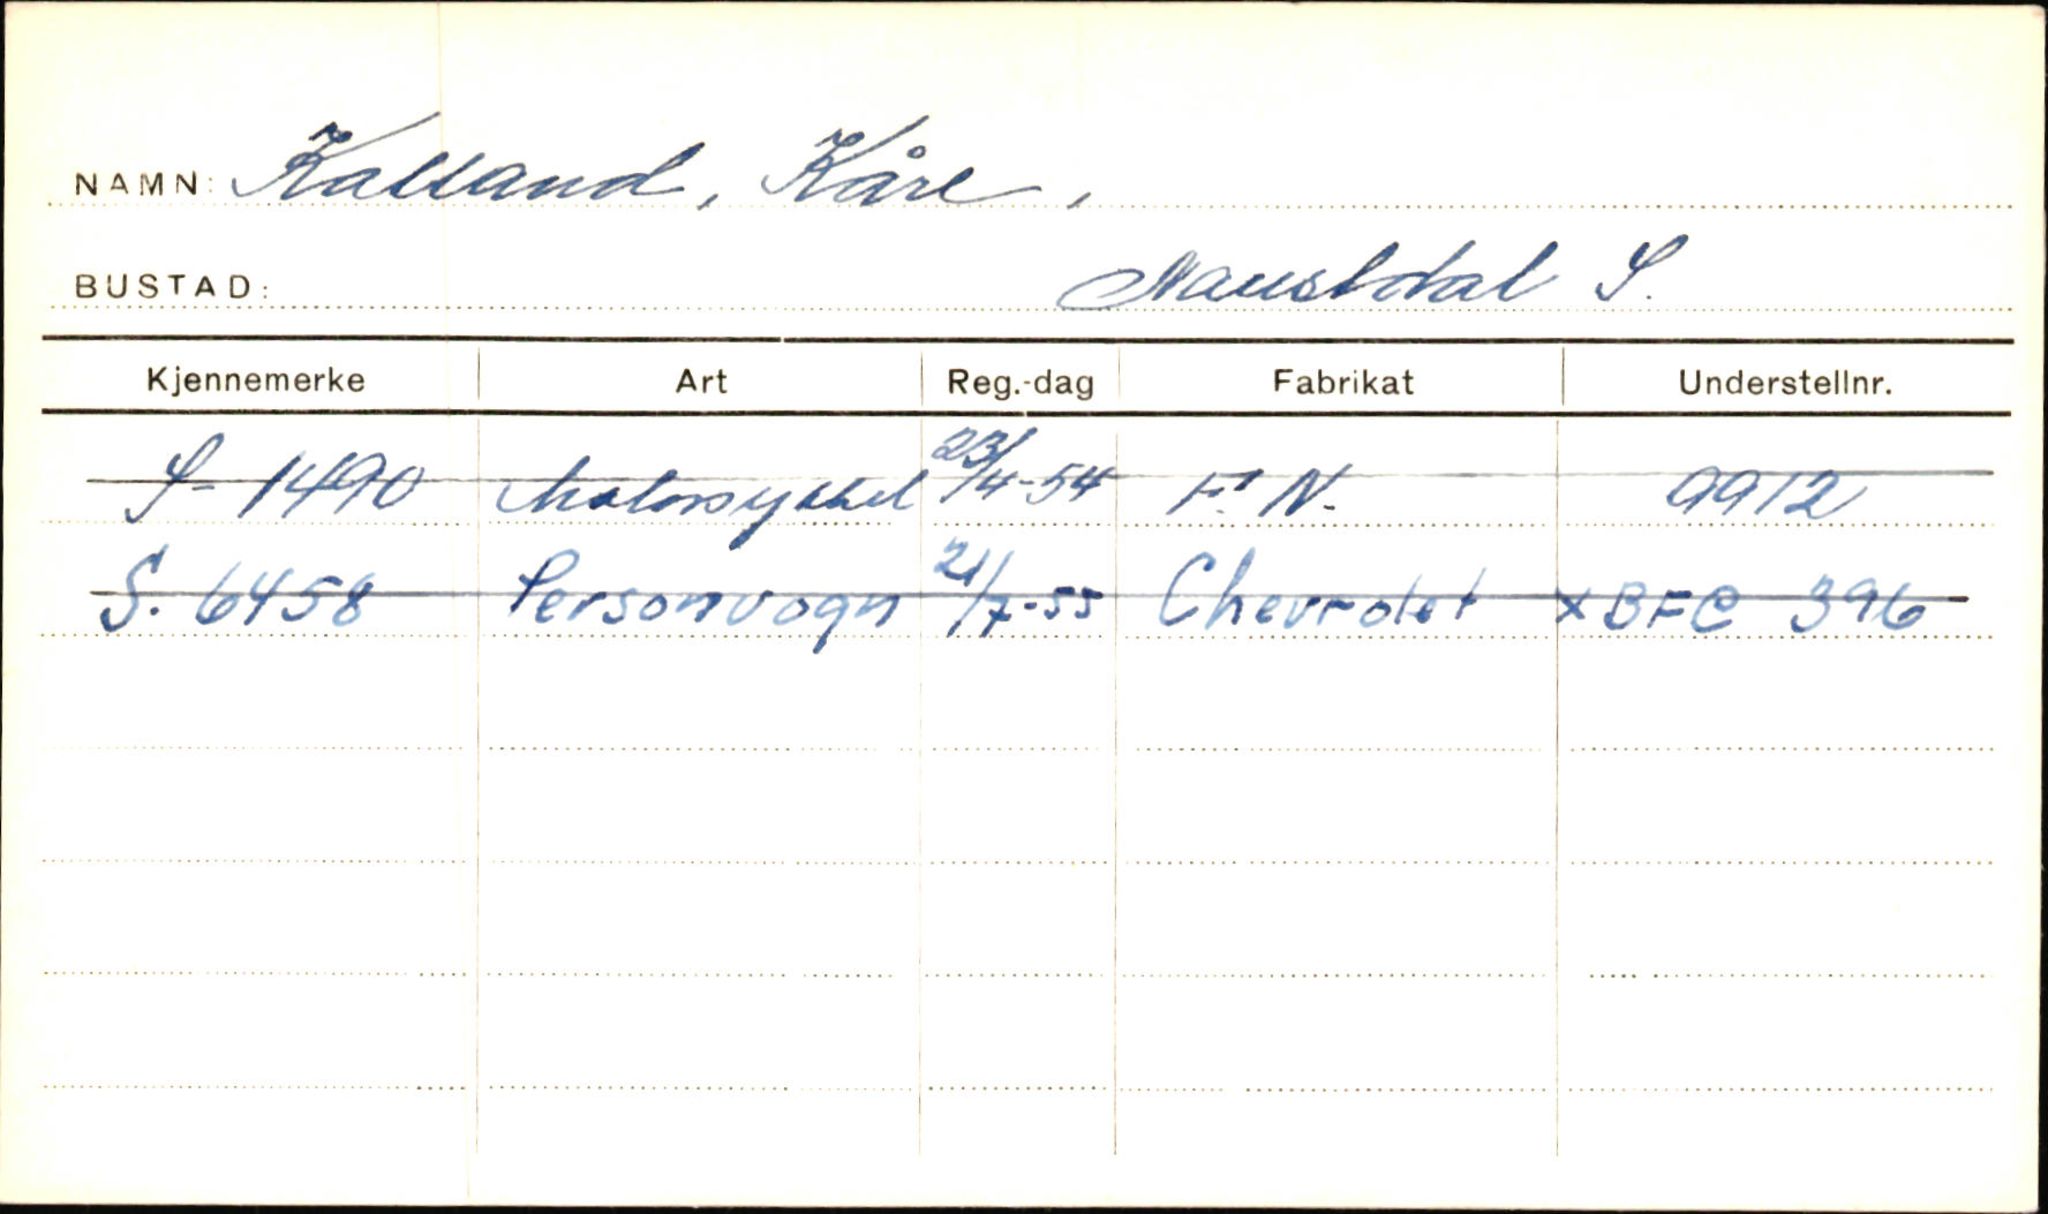 NAMN: Kalland, Kåre,
BUSTAD: Naustdal S.
Kjennemerke Art Reg.-dag Fabrikat Understellnr.
S- 1490 Motorsykkel 23/4-54 F.N. 9912
S. 6458 Personvogn 21/7-55 Chevrolet xBFC 396